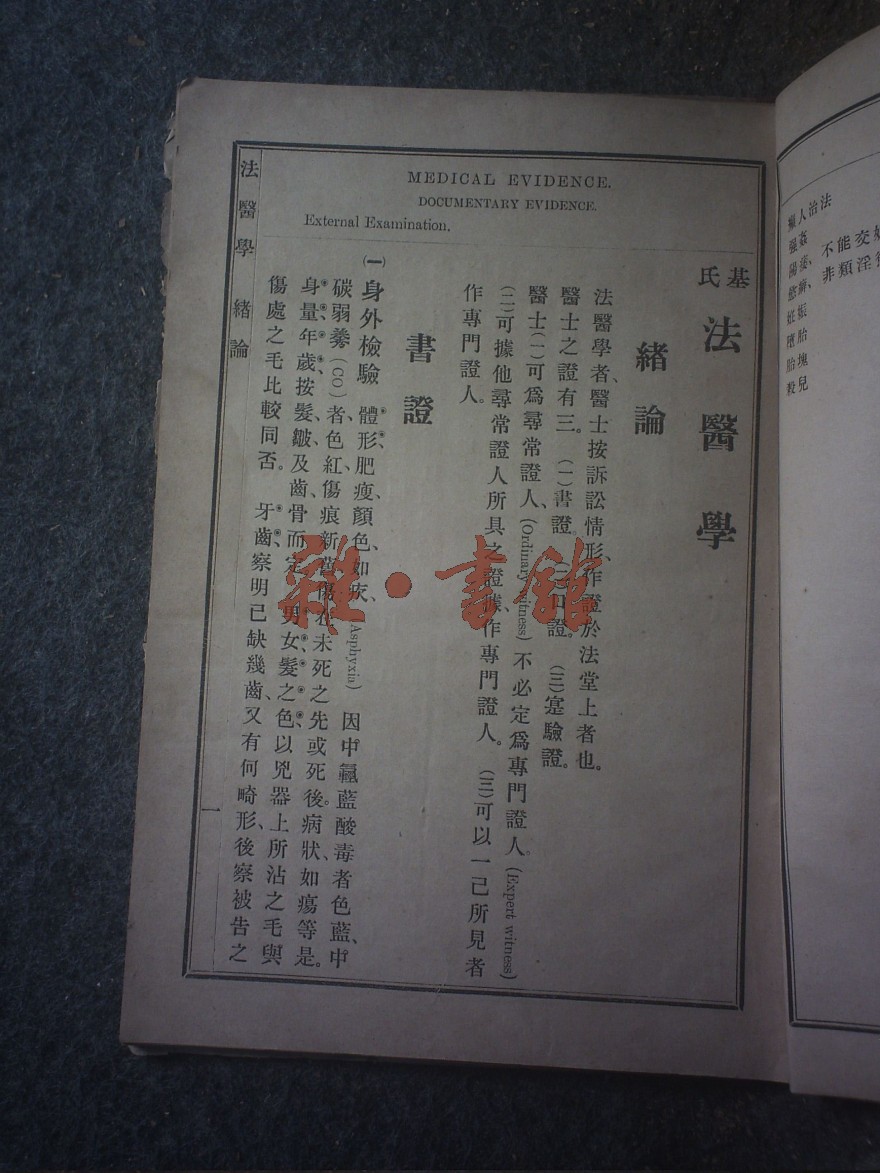 MEDICAL EVIDENCE.
DOCUMENTARY EVIDENCE.
External Examination.
基氏
法醫學
緒論
法醫學者、醫士按訴訟情形、作證於法堂上者也。
醫士之證有三。(一)書證。(二)口證。(三)寔驗證。
醫士(一)可爲尋常證人、(Ordinary witness)不必定爲專門證人。(Expert witness)
(二)可據他尋常證人所具之證據、作專門證人。(三)可以一己所見者
作專門證人。
書證
(一)身外檢驗 體形、肥瘦、顏色、如疾、(Asphyxia)因中藍酸毒者色藍、中
碳弱養(CO)者色紅、傷痕新舊、傷在未死之先或死後。病狀、如瘍等是。
身量、年歲、按髮、皺、及齒、骨而定。男女、髮之色、以兇器上所沾之毛與
傷處之毛比較同否。 牙齒、察明已缺幾齒、又有何畸形、後察被告之
法醫學 緒論
一
雜·書館
治法
人
不能交
非類淫
強姦
胎
塊兒
墮胎
殺